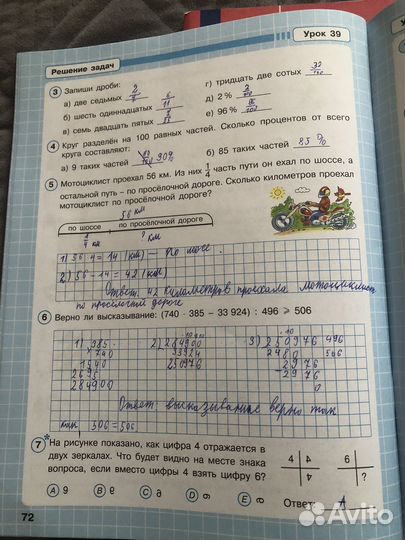 Урок 39
Решение задач
3 Запиши дроби:
а) две седьмых 2/7
б) шесть одиннадцатых 6/11
в) семь двадцать пятых
г) тридцать две сотых 32/100
д) 2 %
е) 96 %
4 Круг разделён на 100 равных частей. Сколько процентов от всего
круга составляют:
а) 9 таких частей
б) 85 таких частей 85 %
5 Мотоциклист проехал 56 км. Из них 1/4 часть пути он ехал по шоссе, а
остальной путь – по просёлочной дороге. Сколько километров проехал
мотоциклист по просёлочной дороге?
56 км
по шоссе по просёлочной дороге
? км
км
1) 56 : 4 = 14 (км) – по шоссе
2) 56 - 14 = 42 (км)
Ответ: 42 километров проехала мотоциклист
по просёлочной дороге
6 Верно ли высказывание: (740 · 385 – 33 924) : 496 ⩾ 506
1) 385
740
1540
2695
284900
2) 284900
33924
250976
3) 250976 496
2480 506
2976
2976
0
Ответ: высказывание верно так
как 506 = 506
7* На рисунке показано, как цифра 4 отражается в
двух зеркалах. Что будет видно на месте знака
вопроса, если вместо цифры 4 взять цифру 6?
4
6
?
A
B
C
D
E
Ответ: A
72
Avito